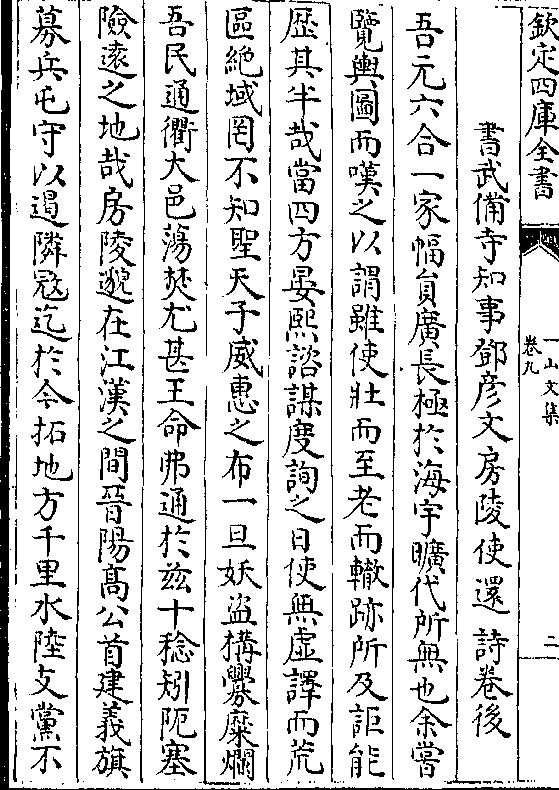 欽定四庫全書
一山文集
卷九
二
書武備寺知事鄧彥文房陵使還詩卷後
吾元六合一家幅員廣長極於海宇曠代所無也余嘗
覽輿圖而嘆之以謂雖使壯而至老而轍跡所及詎能
歴其半哉當四方晏熙諮謀度詢之日使無虛譯而荒
區絶域罔不知聖天子威惠之布一旦妖盜構釁糜爛
吾民通衢大邑蕩焚尤甚王命弗通於兹十稔矧阨塞
險逺之地哉房陵邈在江漢之間晉陽髙公首建義旗
募兵屯守以遏隣冦迄於今拓地方千里水陸支黨不